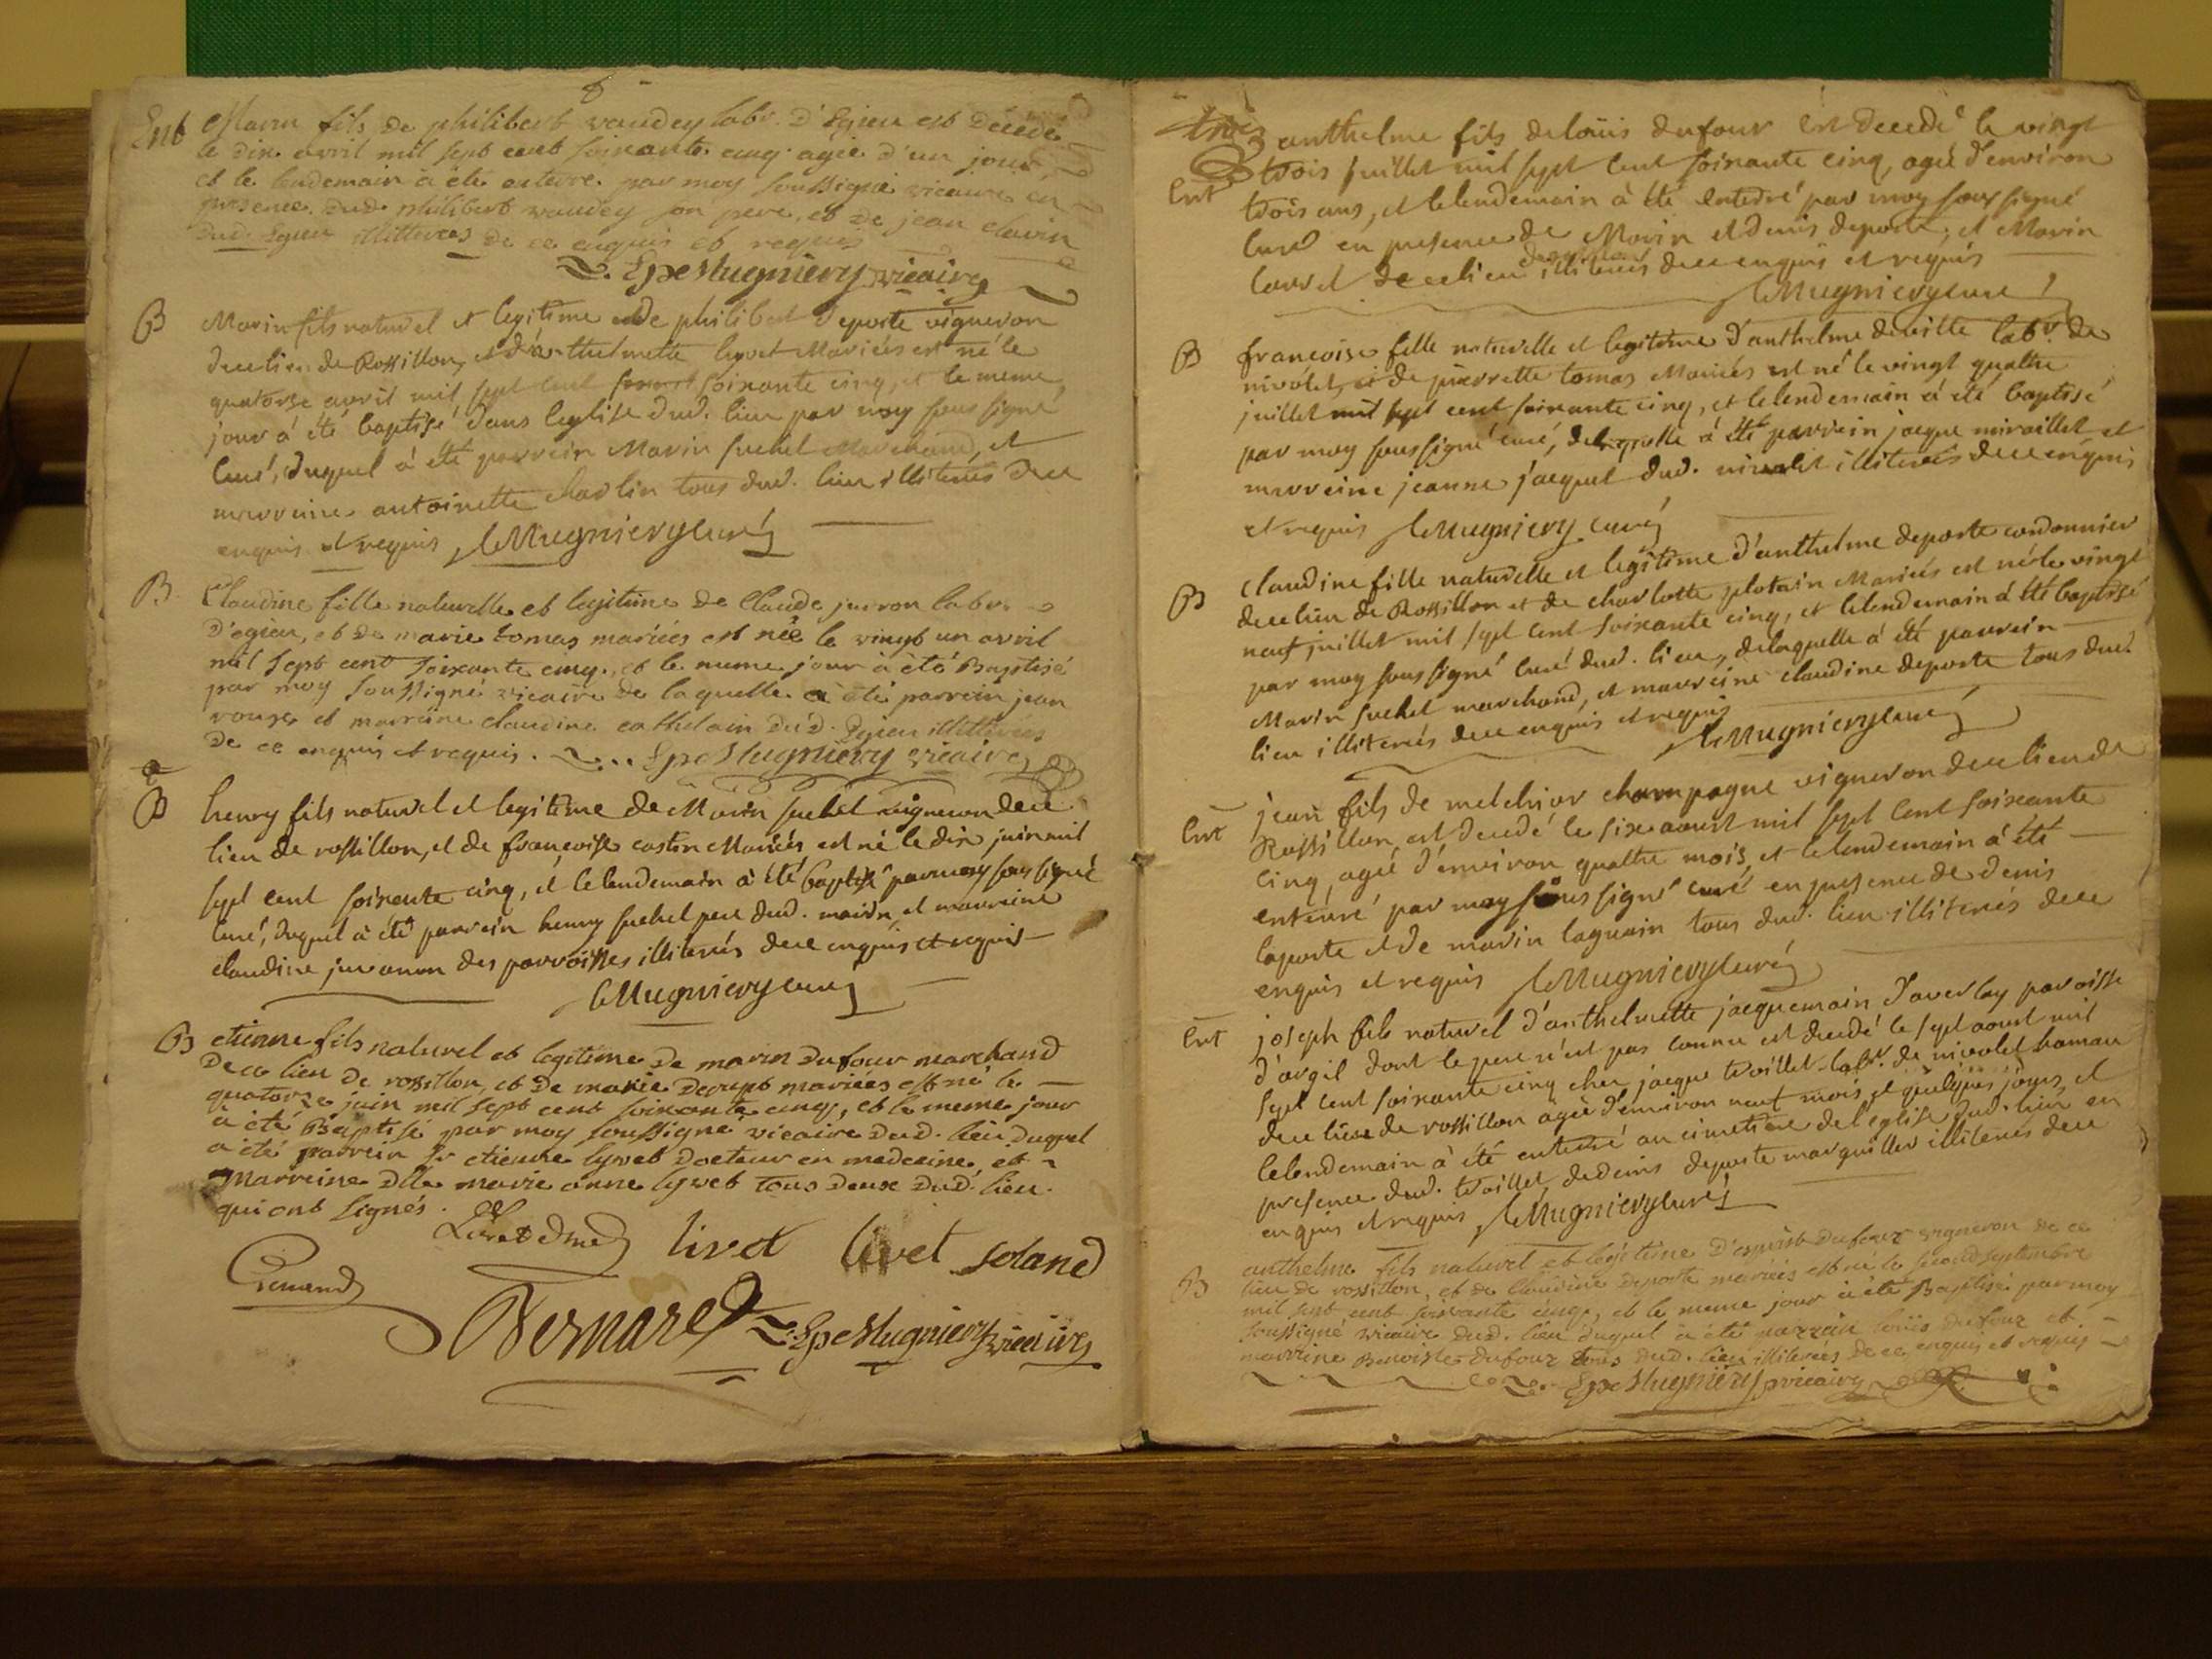 8
Ent Marin fils de philibert vaudey labr. d'Egieu est décédé
le dix avril mil sept cent soixante cinq agée d'un jour,
et le lendemain à été enterré par moy soussigné vicaire en
presence dud. philibert vaudey son pere, et de jean clavin
dud. Egieu illitteres de ce enquis et requis
Mugniery vicaire
B Marin fils naturel et legitime de philibert deporte vigneron
dece lieu de Rossillon, et d'anthelmette Mariés est né le
quatorze avril mil sept cent soixante cinq, et le meme
jour à été baptisé dans leglise dud. lieu par moy sous signé
curé, duquel à été parrein Marin suchet Marchand, et
marreine antoinette charlin tous dud. lieu illiterés dece
enquis et requis Mugniery curé
B Claudine fille naturelle et legitime de Claude juvron labr.
d'egieu, et de marie tomas mariées est née le vingt un avril
mil sept cent soixante cinq, et le meme jour à été Baptisé
par moy soussigné vicaire de laquelle a été parrein jean
rouse et marreine claudine cathelain dud. Egieu illitterées
de ce enquis et requis. Mugniery vicaire
B henry fils naturel et legitime de Marin suchet vigneron dece
lieu de rossillon, et de francoise castin Mariés est né le dix juin mil
sept cent soixante cinq, et le lendemain à été baptisé par moy sous signé
curé, duquel à été parrein henry suchet pere dud. marin et marreine
claudine juvanon des parroisses illiterés dece enquis et requis
Mugniery curé
B etienne fils naturel et legitime de marin dufour marchand
de ce lieu de rossillon, et de marie decrept mariées est né le
quatorze juin mil sept cent soixante cinq, et le meme jour
a été Baptisé par moy soussigné vicaire dud. lieu duquel
a été parrein sr etienne lyvet docteur en medecine, et
marreine dlle marie anne lyvet tous deux dud. lieu.
qui ont signés.
Livet livet soland
Bernard Mugniery vicaire
anthelme fils de louis dufour est decedé le vingt
trois juillet mil sept cent soixante cinq, agé d'environ
Ent trois ans, et lelendemain à été enterré par moy sous signé
curé en presence de Marin et denis deporte, et Marin
de ce lieu illiterés dece enquis et requis
Mugniery curé
B francoise fille naturelle et legitime d'anthelme deville labr. de
nivolet, et de pierrette tomas Mariés est né le vingt quattre
juillet mil sept cent soixante cinq, et lelendemain à été baptisé
par moy sous signé curé, de laquelle à été parrein jacque miraillet, et
marreine jeanne jacquet dud. nivolet illiterés dece enquis
et requis Mugniery curé
B claudine fille naturelle et legitime d'anthelme deporte cordonnier
dece lieu de Rossillon et de charlotte plotain Mariés est née le vingt
neuf juillet mil sept cent soixante cinq, et lelendemain à été baptisé
par moy sous signé curé dud. lieu, de laquelle à été parrein
Marin suchet marchand, et marreine claudine deporte tous dud.
lieu illiterés dece enquis et requis
Mugniery curé
Ent jean fils de melchior champagne vigneron dece lieu de
Rossillon, est decedé le six aoust mil sept cent soixante
cinq, agé d'environ quattre mois, et lelendemain à été
enterré par moy sous signé curé en presence de denis
laporte et de marin laguain tous dud. lieu illiterés dece
enquis et requis Mugniery curé
Ent joseph fils naturel d'anthelmette jacquemain d'averlay paroisse
d'argil dont le pere n'est pas connu est decedé le sept aoust mil
sept cent soixante cinq chez jacque troillet labr. de nivolet hameau
dece lieu de rossillon agée d'environ neuf mois et quelques jours, et
lelendemain à été enterré au cimetiere de l'eglise dud. lieu en
presence dud. troillet, de denis deporte marguiller illiterés dece
enquis et requis Mugniery curé
B anthelme fils naturel et legitime d'esprit dufour vigneron de ce
lieu de rossillon, et de claudine deporte mariées est né le second septembre
mil sept cent soixante cinq, et le meme jour à été Baptisé par moy
soussigné vicaire dud. lieu duquel a été parrein louis dufour et
marreine Benoiste dufour tous dud. lieu illiterées de ce enquis et requis
Mugniery vicaire